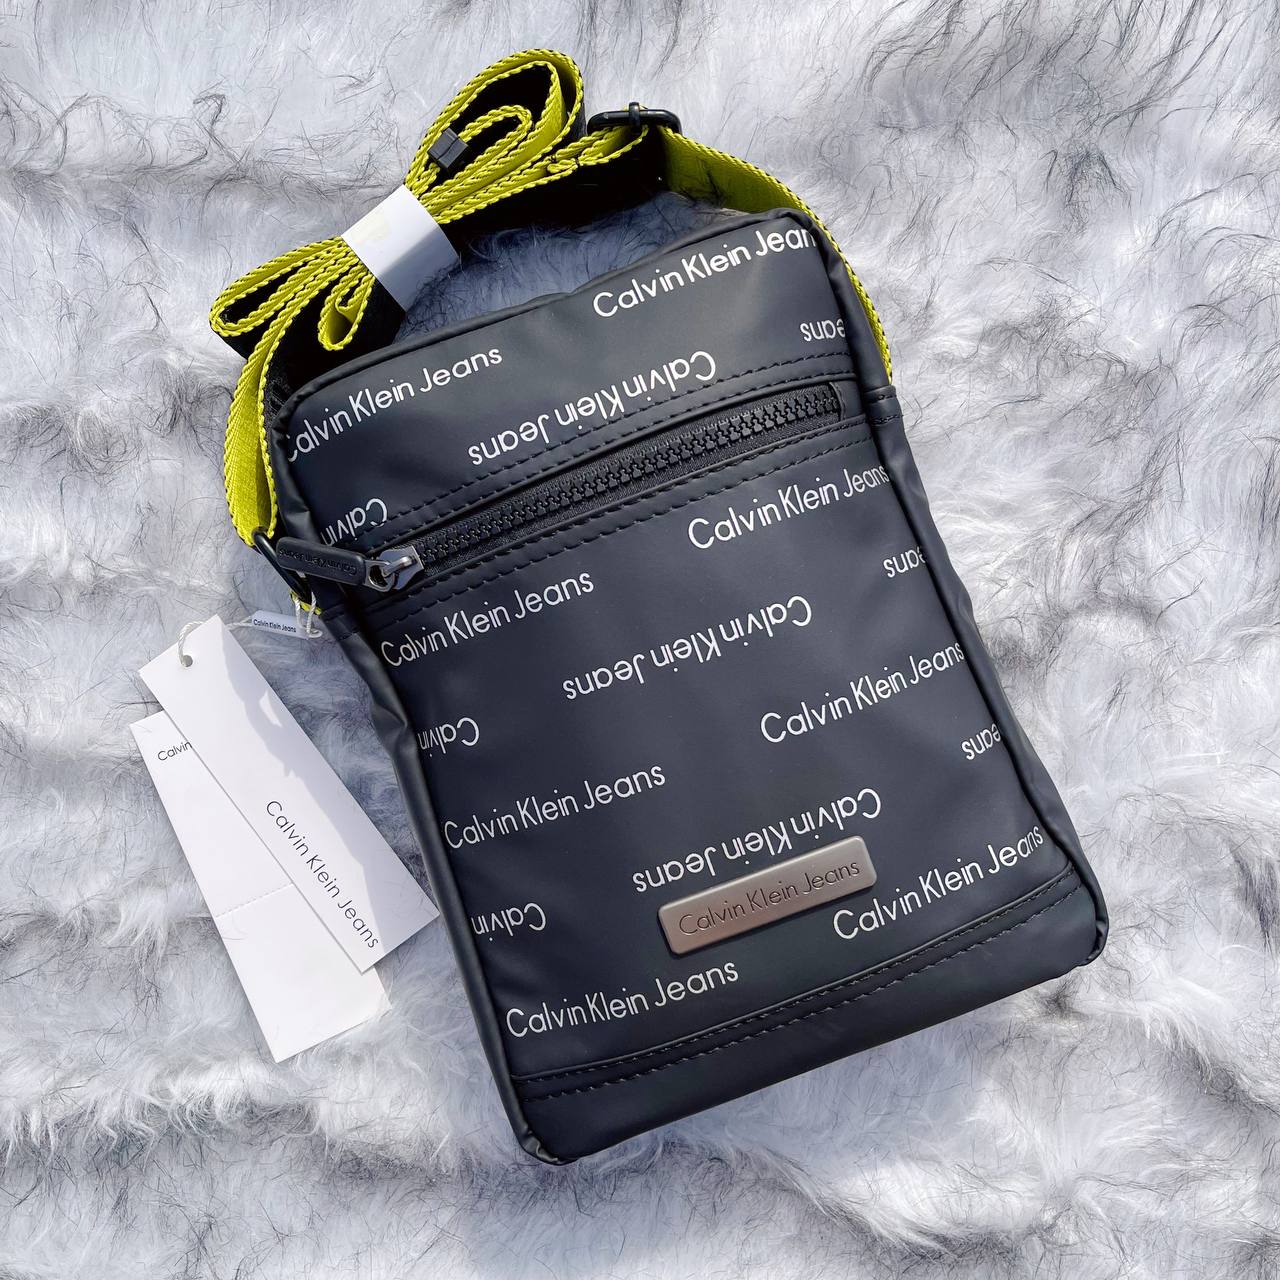 Calvin Klein Jean
Jeans
Calvin Klein Jeans
Calvin Klein Jeans
Calvin
Calvin Klein Jeans
Calvin Klein Jeans
Jeans
Calvin Klein Jeans
Calvin Klein Jeans
Calvin Klein Jeans
Calvin Klein Jeans
Calvin
Jeans
Calvin
Calvin Klein Jeans
Calvin Klein Jeans
Calvin Klein Jeans
Calvin Klein Jeans
Calvin Klein Jeans
Calvin
Calvin Klein Jeans
Calvin Klein Jeans